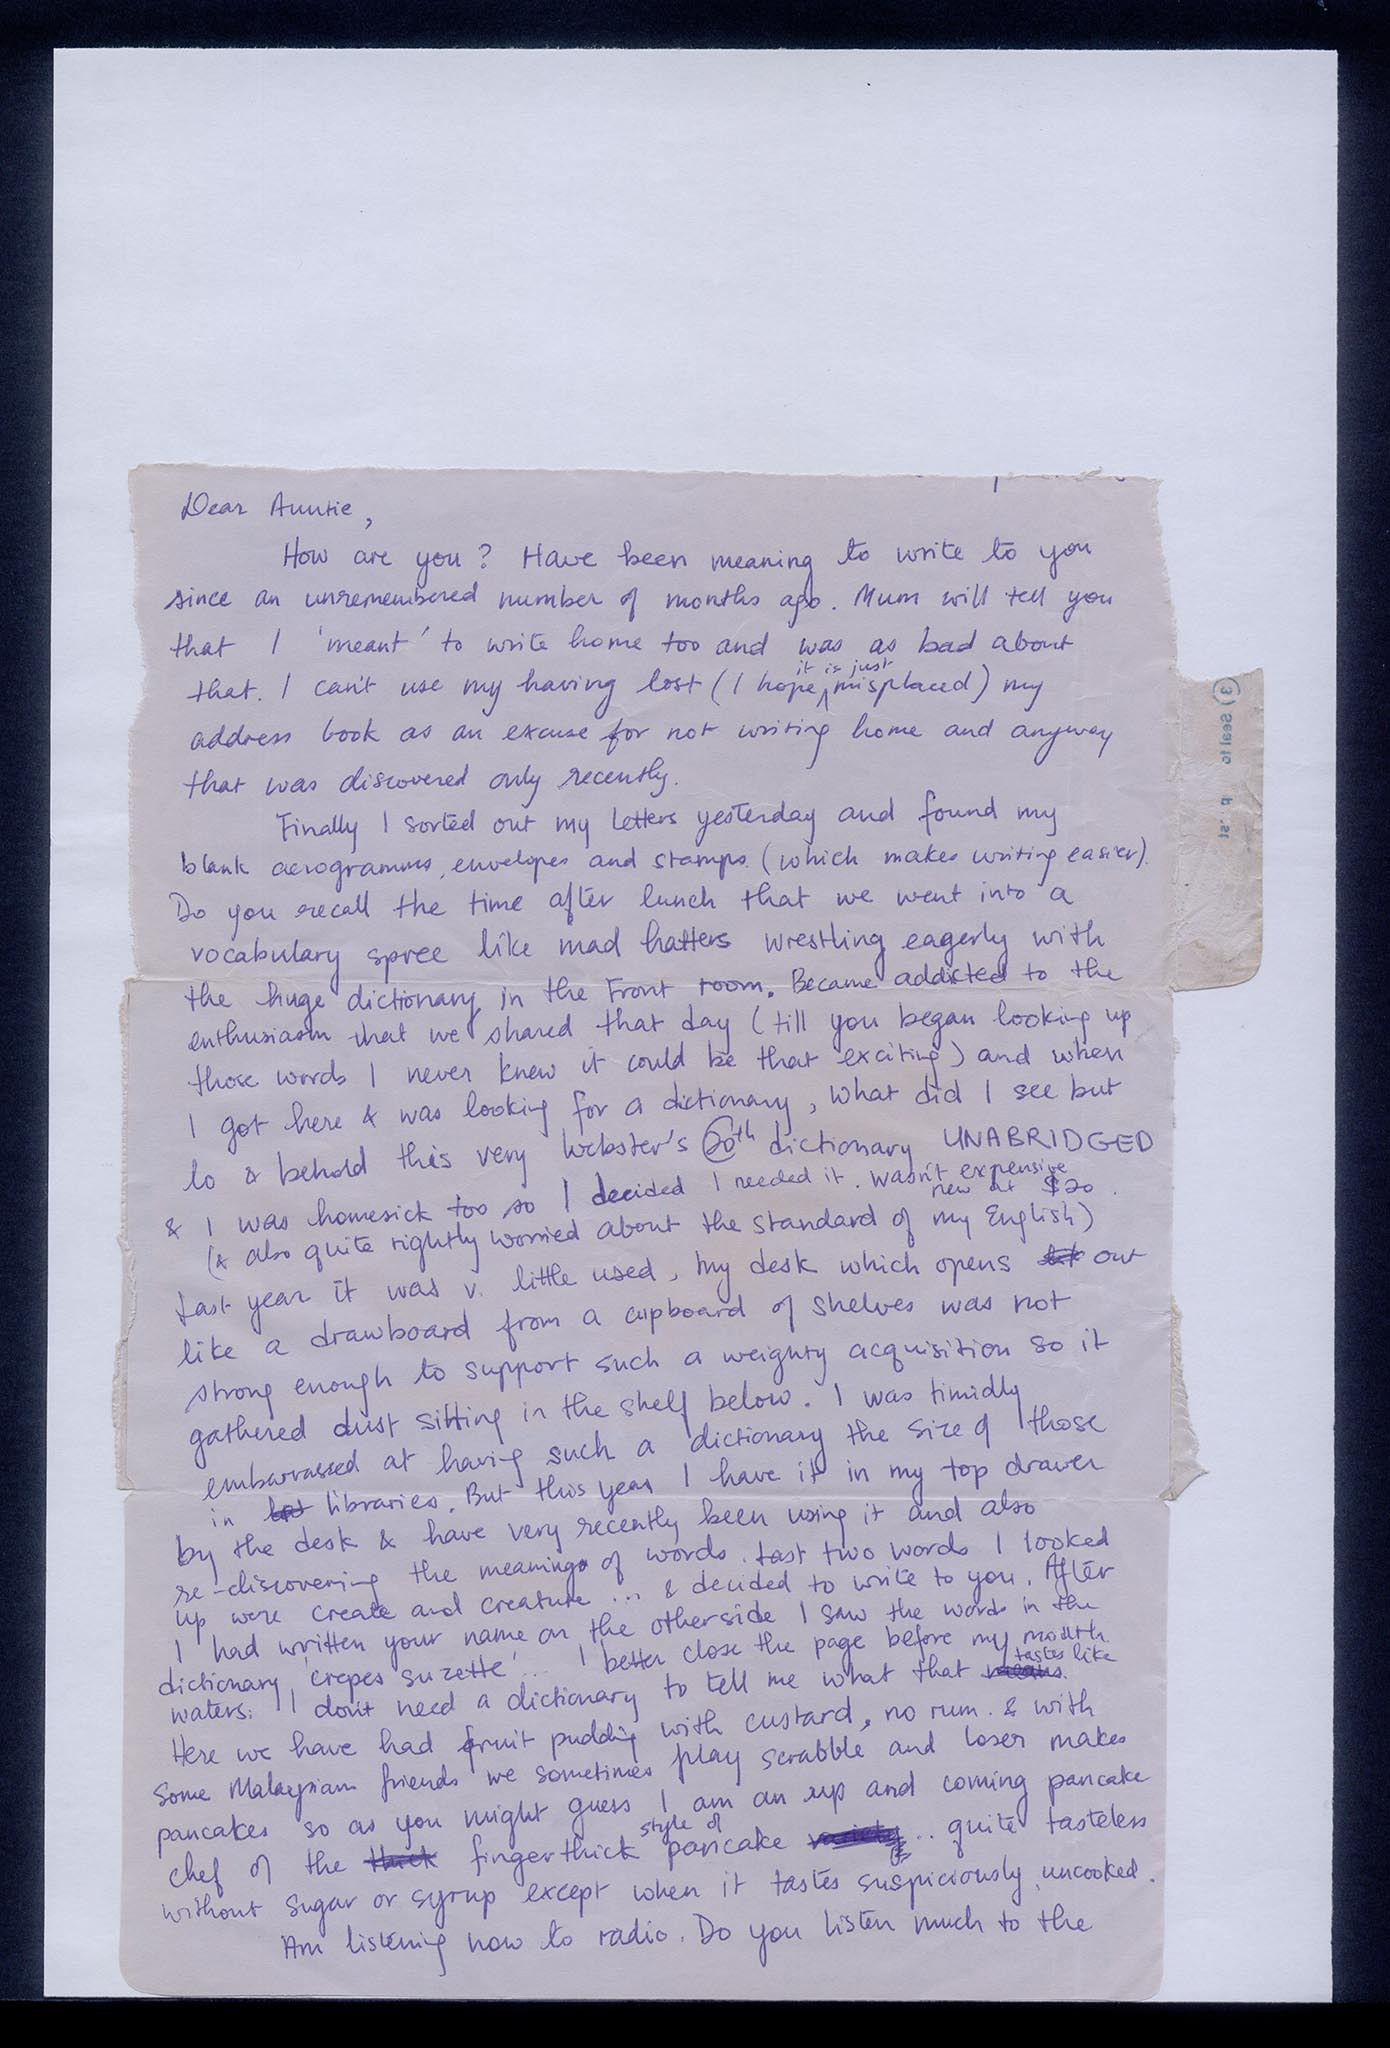 Dear Auntie,
How are you? Have been meaning to write to you
since an unremembered number of months ago. Mum will tell you
that I 'meant' to write home too and was as bad about
that. I can't use my having lost (I hope it is just misplaced) my
address book as an excuse for not writing home and anyway
that was discovered only recently.
Finally I sorted out my letters yesterday and found my
blank aerogramms, envelopes and stamps (which makes writing easier).
Do you recall the time after lunch that we went into a
vocabulary spree like mad hatters wrestling eagerly with
the huge dictionary in the Front room. Became addicted to the
enthusiasm that we shared that day (till you began looking up
those words I never knew it could be that exciting) and when
I got here & was looking for a dictionary, what did I see but
lo & behold this very Webster's 20th dictionary UNABRIDGED
& I was homesick too so I decided I needed it. Wasn't expensive
new at $20.
(& also quite rightly worried about the standard of my English)
Last year it was v. little used, my desk which opens out
like a drawboard from a cupboard of shelves was not
strong enough to support such a weighty acquisition so it
gathered dust sitting in the shelf below. I was timidly
embarrassed at having such a dictionary the size of those
in libraries. But this year I have it in my top drawer
by the desk & have very recently been using it and also
re-discovering the meanings of words. Last two words I looked
up were create and creature ... & decided to write to you. After
I had written your name on the otherside I saw the words in the
dictionary 'crepes suzette'... I better close the page before my mouth
waters. I don't need a dictionary to tell me what that tastes like
Here we have had fruit pudding with custard, no rum. & with
some Malaysian friends we sometimes play scrabble and loser makes
pancakes so as you might guess I am an up and coming pancake
chef of the fingerthick style of pancake .. quite tasteless
without sugar or syrup except when it tastes suspiciously uncooked.
Am listening now to radio. Do you listen much to the
3) Seal to